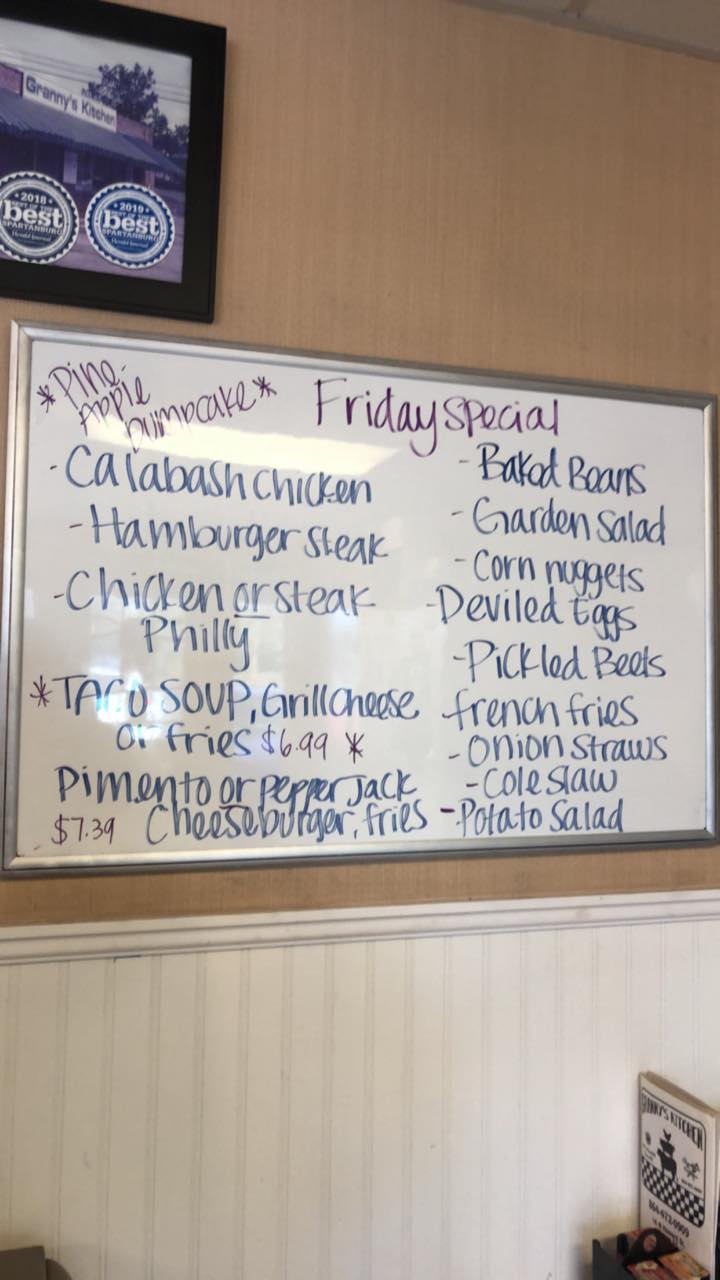 Granny's Kitchen
2018
BEST OF THE
best
SPARTANBURG
Herald-Journal
2019
BEST OF THE
best
SPARTANBURG
Herald-Journal
*Pine-
apple
Dumpcake*
Friday special
-Calabash Chicken
-Hamburger Steak
-Chicken or steak
Philly
*TACO SOUP, Grill Cheese
or fries $6.99 *
Pimento or pepper jack
$7.39 Cheeseburger, fries
-Baked Beans
-Garden Salad
-Corn nuggets
-Deviled Eggs
-Pickled Beets
-french fries
-Onion Straws
-Cole Slaw
-Potato Salad
GRANNY'S KITCHEN